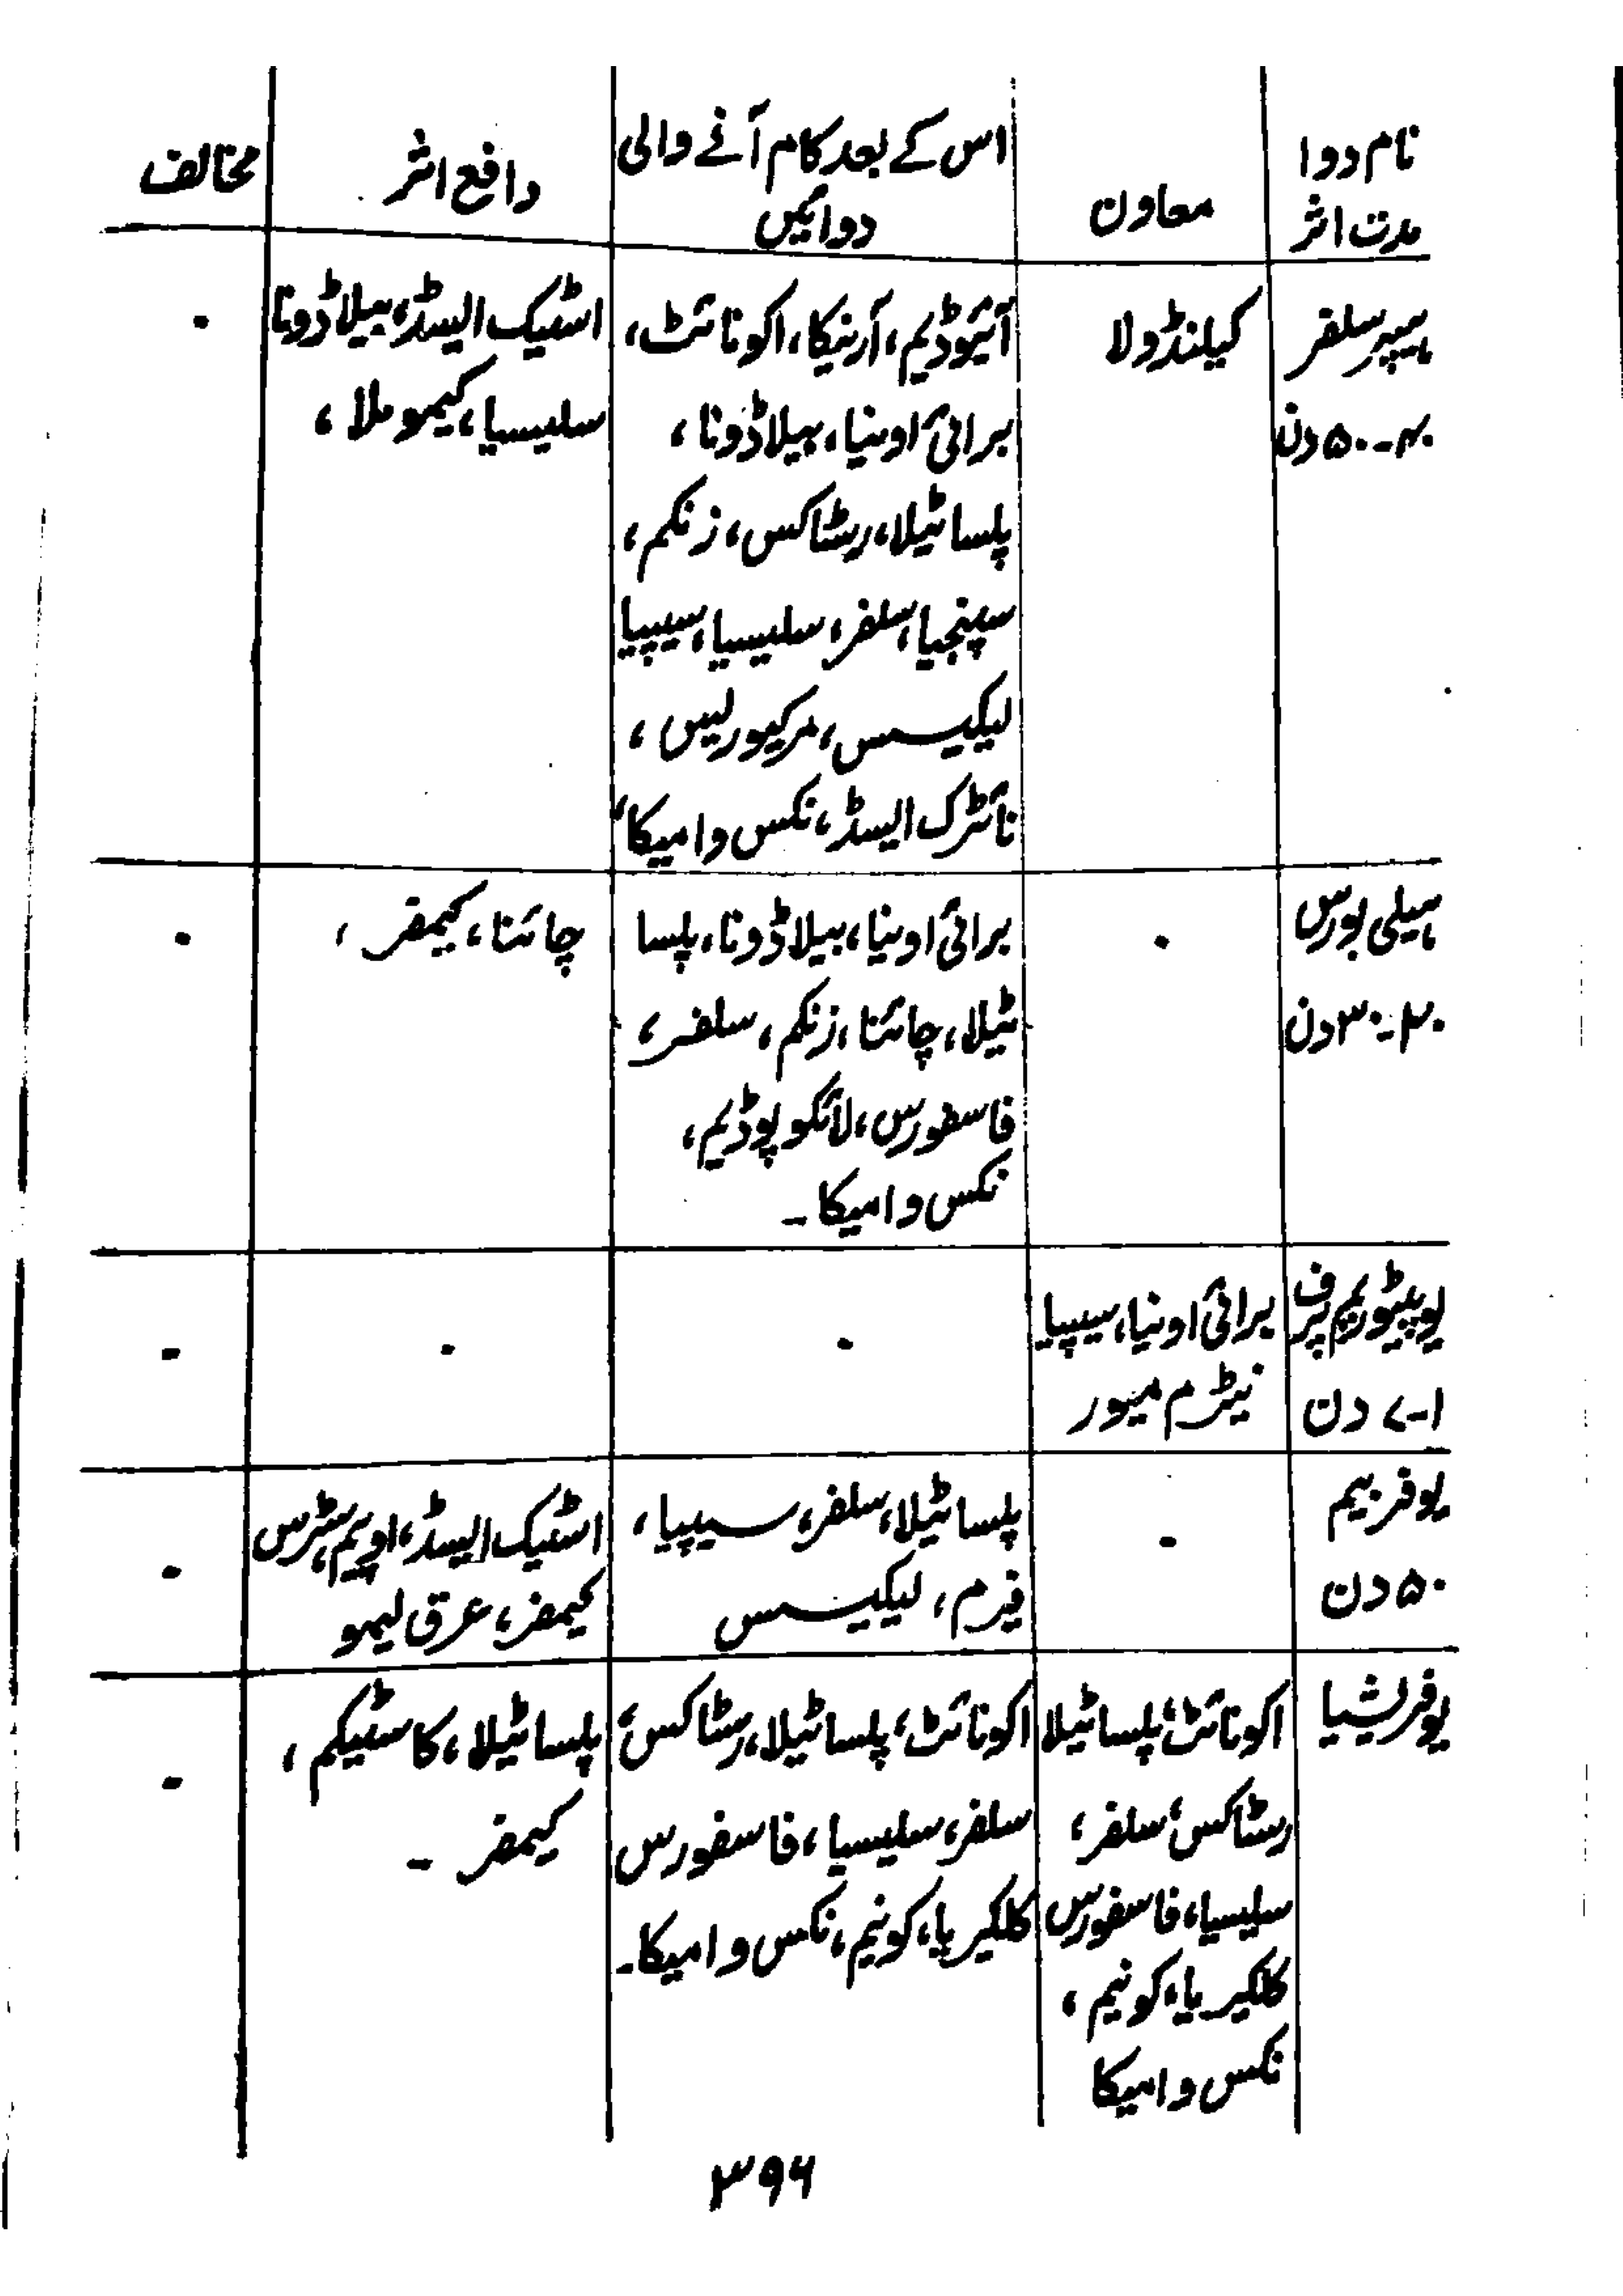 نام دوا
مدت اثر
معاون
اس کے بعد کام آنے والی
دوائیں
دافع اثر
مخالف
ہیپر سلفر
۴۰-۵۰ دن
کیلنڈولا
آئیوڈیم، آرنیکا، اکونائٹ،
برائی اونیا، بیلاڈونا،
پلساٹیلا، رسٹاکس، زنکم،
سپنجیا، سلفر، سلیسیا، سیپیا
لیکیسس، مرکیورلیس،
نائٹرک ایسڈ، نکس وامیکا،
اسٹیک ایسڈ، بیلاڈونا
سلیسیا، کیمو ملا،
۰
ہیلی بورس
۲۰-۳۰ دن
۰
برائی اونیا، بیلاڈونا، پلسا
ٹیلا، چائنا، زنکم، سلفر،
فاسفورس، لائکو پوڈیم،
نکس وامیکا ۔
چائنا، کیمفر،
۰
یوپیٹوریم پرف
۱-۷ دن
برائی اونیا، سیپیا
نیٹرم میور
۰
۰
-
یوفربیم
۵۰ دن
-
پلساٹیلا، سلفر، سیپیا،
فیرم، لیکیسس
اسٹیک ایسڈ، اوپیم، سٹرس
کیمفر، عرق لیمو
-
یوفریشیا
اکونائٹ، پلساٹیلا
رسٹاکس، سلفر،
سلیسیا، فاسفورس
کلکیریا، کونیم،
نکس وامیکا
اکونائٹ، پلساٹیلا، رسٹاکس،
سلفر، سلیسیا، فاسفورس
کلکیریا، کونیم، نکس وامیکا۔
پلساٹیلا، کاسٹیکم،
کیمفر ۔
-
۳۹۶